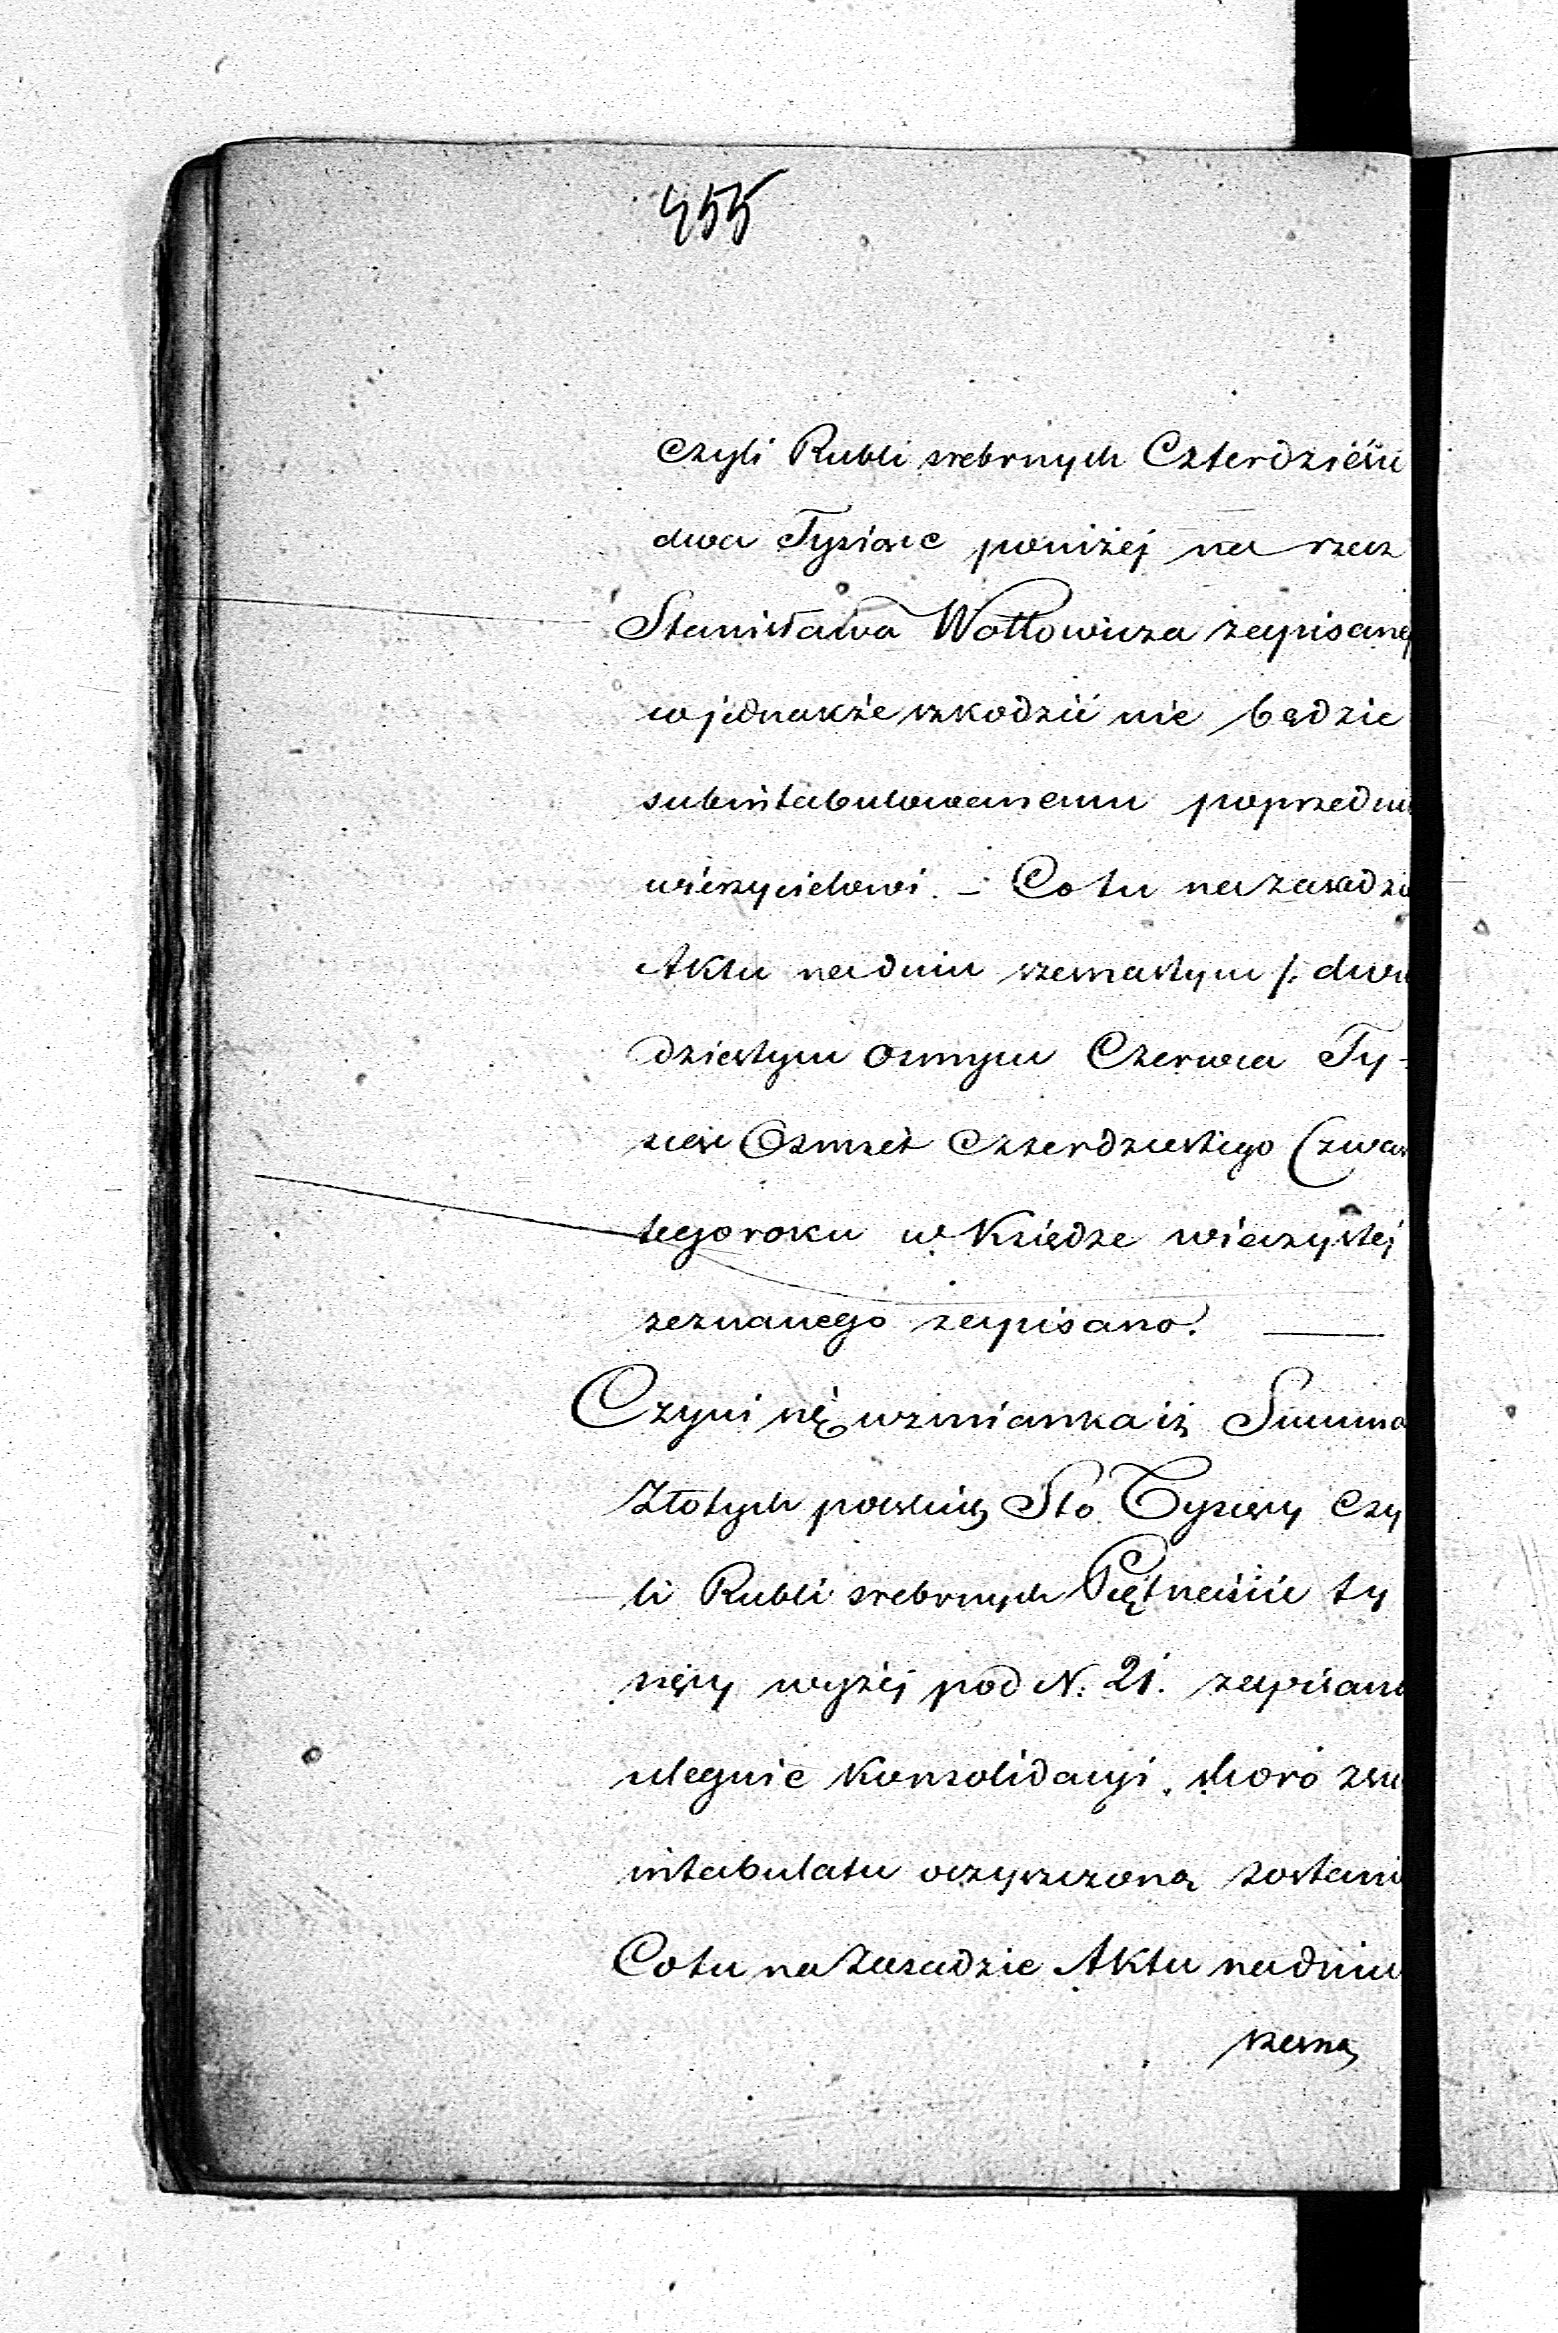 455
czyli Rubli srebrnych Czterdzieści
dwa Tysiące poniżej na rzecz
Stanisława Wołłowicza zapisanej
co jednakże szkodzić nie będzie
subintabulowanemu poprzedni
wierzycielowi. – Co tu na zasadzie
Aktu na dniu szesnastym /: dwu
dziestym ósmym Czerwca Ty-
siąc Ośmset Czterdziestego Czwar
tego roku w Księdze wieczystej
zeznanego zapisano. —
Czyni się wzmianka iż Summa
Złotych polskich Sto Tysięcy czy
li Rubli srebrnych Piętnaście ty
sięcy wyżej pod N. 21. zapisana
ulegnie konsolidacyi, skoro z su
intabulatu oczyszczoną zostanie
Co tu na zasadzie Aktu na dniu
szesna